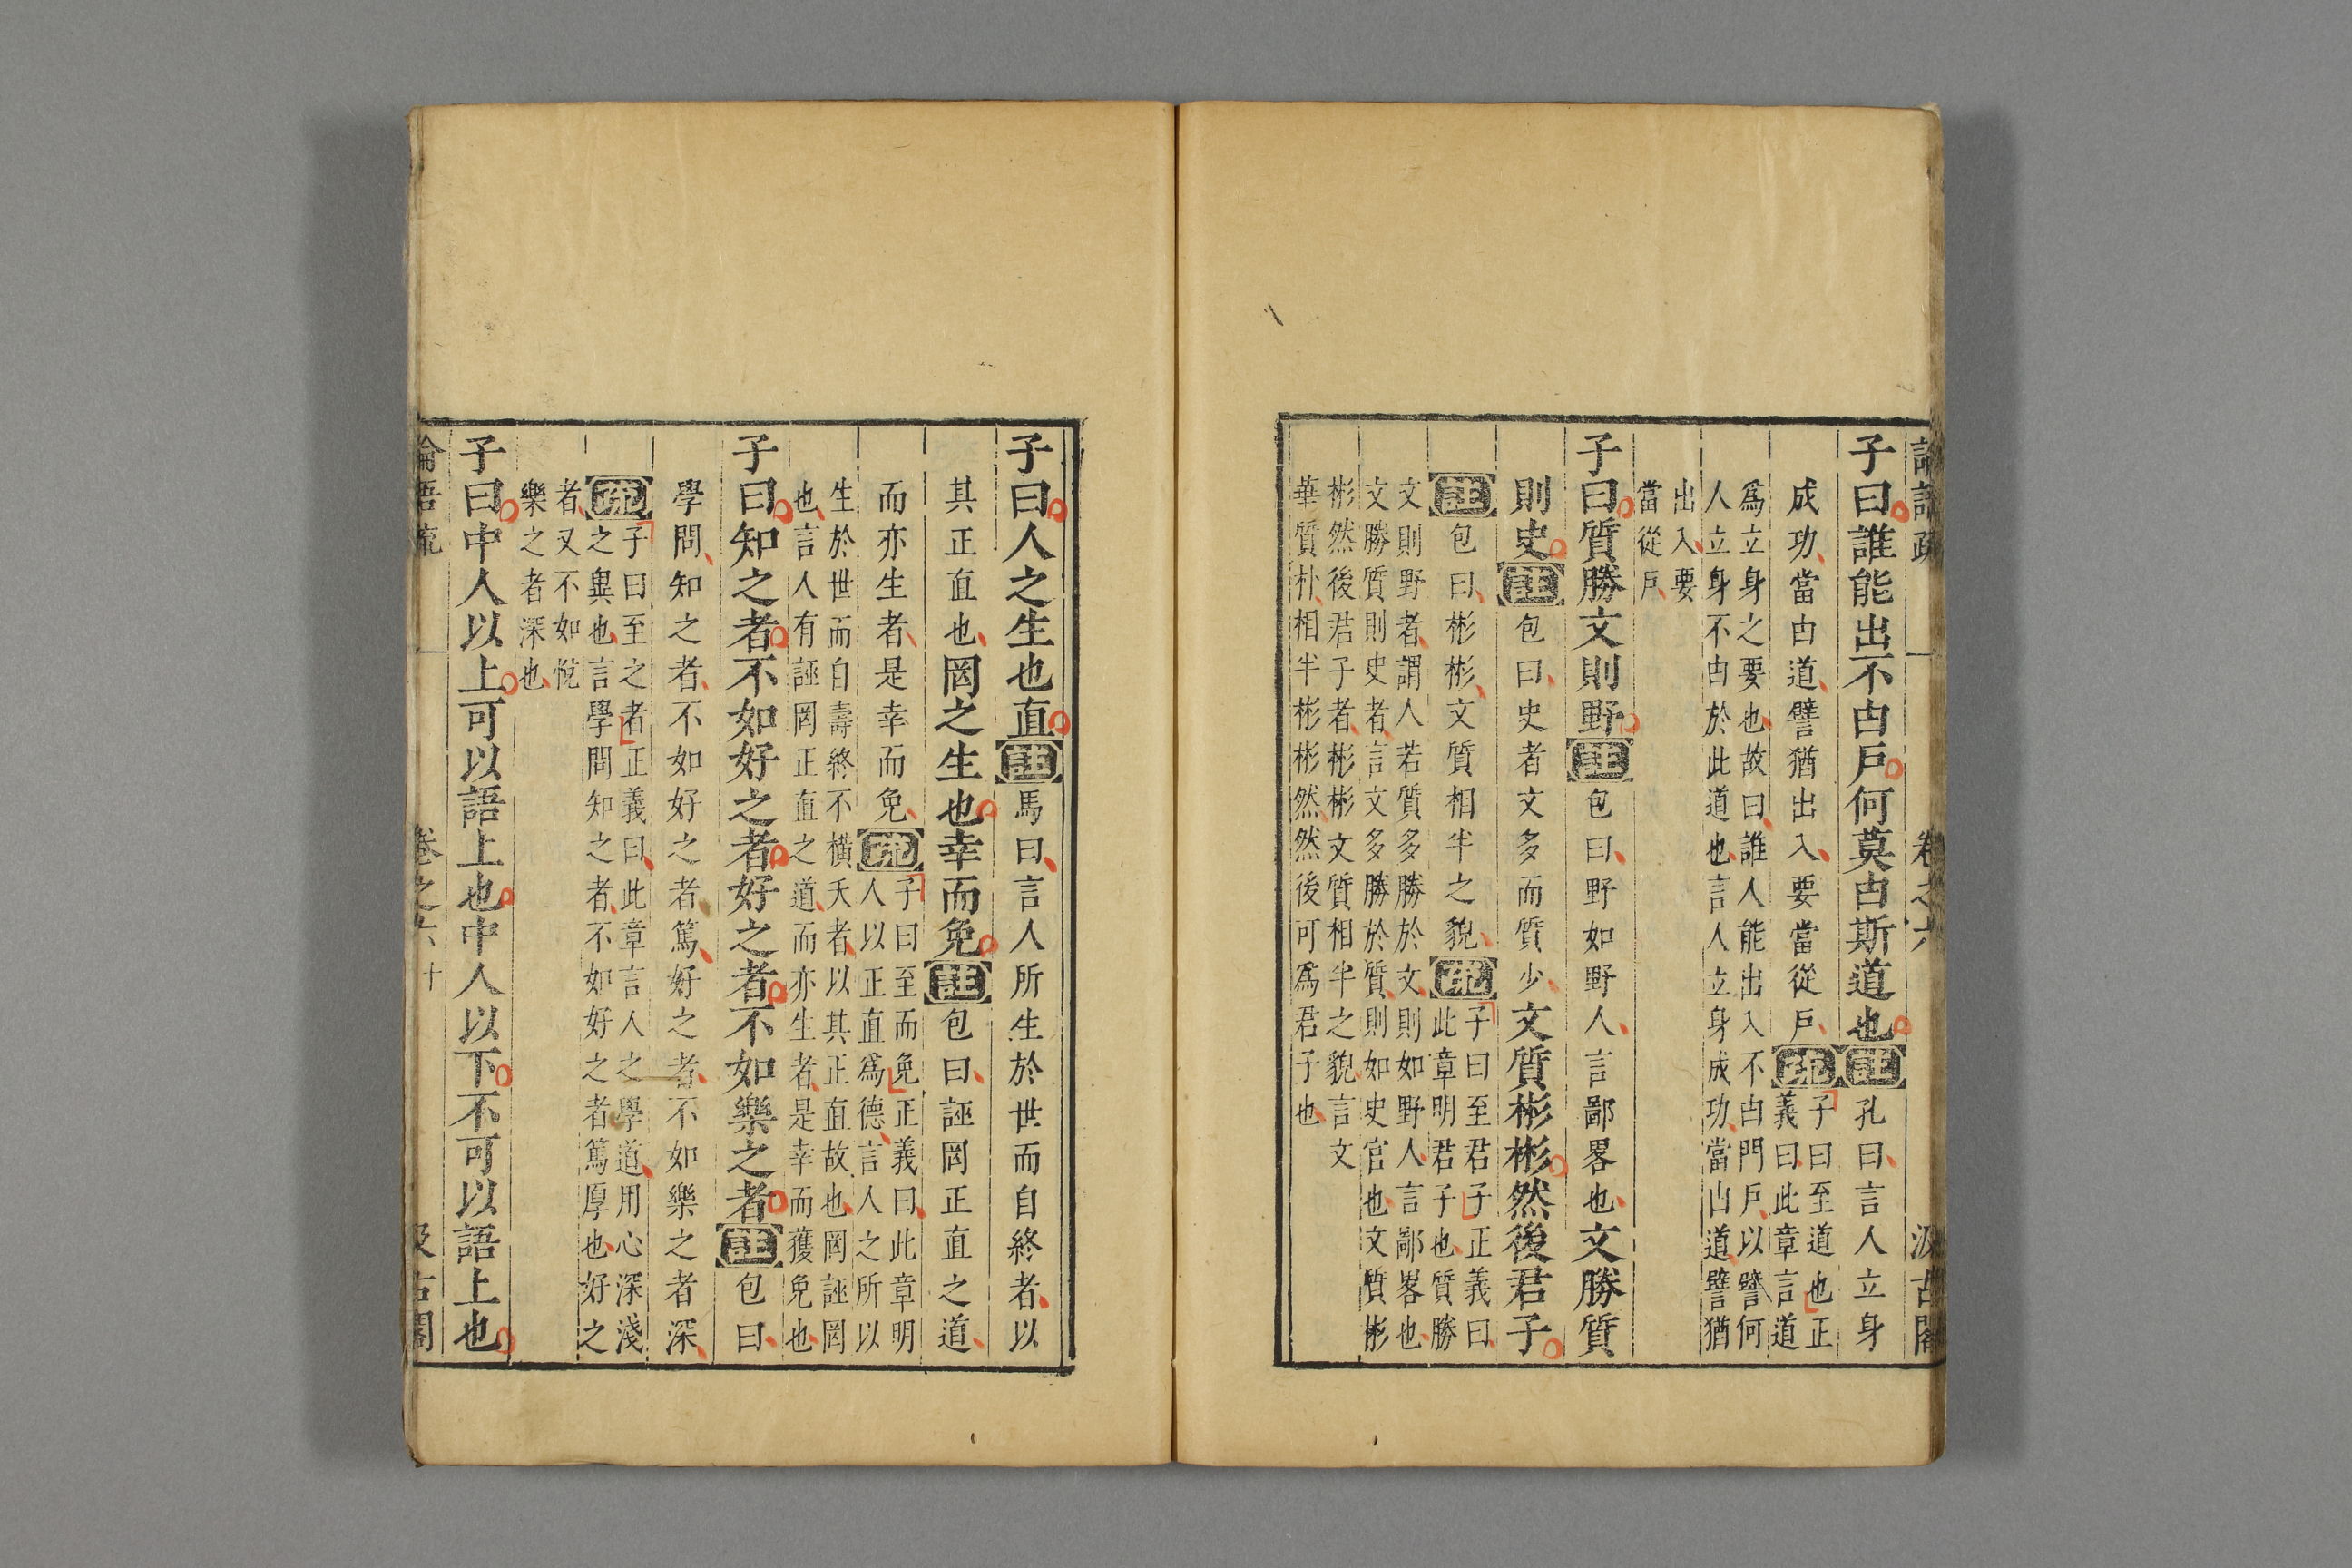 論語疏 卷之六 汲古閣
子曰誰能出不由戸何莫由斯道也註孔曰言人立身
成功當由道譬猶出入要當從戸疏子曰至道也正
義曰此章言道
爲立身之要也故曰誰人能出入不由門戸以譬何
人立身不由於此道也言人立身成功當由道譬猶
出入要
當從戸
子曰質勝文則野註包曰野如野人言鄙畧也文勝質
則史註包曰史者文多而質少文質彬彬然後君子
註包曰彬彬文質相半之貌疏子曰至君子正義曰
此章明君子也質勝
文則野者謂人若質多勝於文則如野人言鄙畧也
文勝質則史者言文多勝於質則如史官也文質彬
彬然後君子者彬彬文質相半之貌言文
華質朴相半彬彬然然後可爲君子也
子曰人之生也直註馬曰言人所生於世而自終者以
其正直也罔之生也幸而免註包曰誣罔正直之道
而亦生者是幸而免疏子曰至而免正義曰此章明
人以正直爲德言人之所以
生於世而自壽終不橫夭者以其正直故也罔誣罔
也言人有誣罔正直之道而亦生者是幸而獲免也
子曰知之者不如好之者好之者不如樂之者註包曰
學問知之者不如好之者篤好之者不如樂之者深
疏子曰至之者正義曰此章言人之學道用心深淺
之異也言學問知之者不如好之者篤厚也好之
者又不如悅
樂之者深也
子曰中人以上可以語上也中人以下不可以語上也
論語疏 卷之六 十 汲古閣